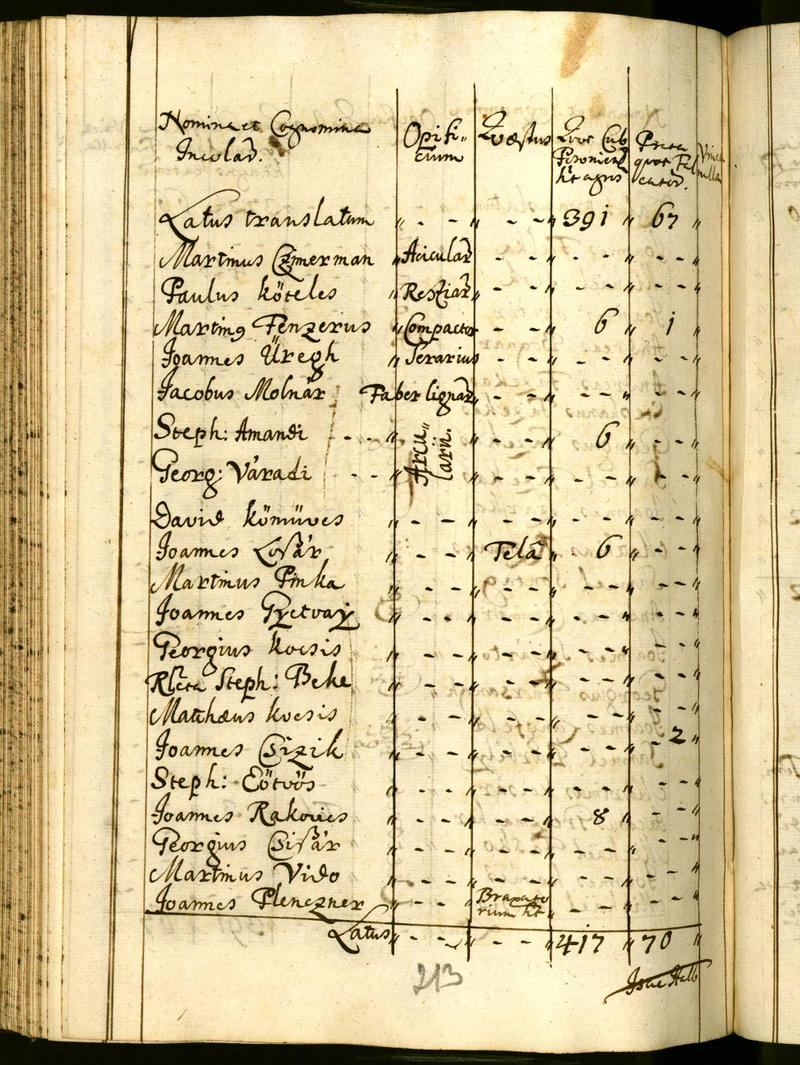 Nomina et Cognomina Opifi- Quæstus Quot Cub Prata
Incolar. cium Posoniens quot Fal
ht agros cator.
Latus translatum " - - " - - " 391 " 67 "
Martinus Czimerman " Acicular - - " - - - - "
Paulus köteles " Restiar " - - " - - - - "
Martinus Penzerus " Compactor - - " 6 " 1 "
Joannes Üregh " Serarius - - - - - - "
Jacobus Molnár Faber lignar " - - " - - " - - "
Steph: Amandi - - " Arcu- " - - " 6 " - - "
Georg: Váradi - - " larii. " - - " - - " - - "
David kömüves " - - " - - " - - " - - "
Joannes Losár " - - " Telā " 6 " - - "
Martinus Pinka " - - " - - " - - " - - "
Joannes Gyetvay " - - " - - " - - " - - "
Georgius kocsis " - - " - - " - - " - - "
Rlcta Steph: Beke " - - " - - " - - " - - "
Mathæus kocsis " - - " - - " - - " - - "
Joannes Csizik " - - " - - " - - " - 2 "
Steph: Eötvös " - - " - - " - - " - - "
Joannes Rakovics " - - " - - " 8 " - - "
Georgius Csisár " - - " - - " - - " - - "
Martinus Vido " - - " - - " - - " - - "
Joannes Plenczner " - - " Braxato- " - - " - - "
rium ht
Latus " - - " - - " 417 " 70 "
213